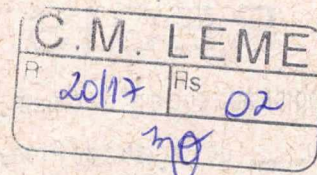 C.M. LEME
P 20/17 Fls 02